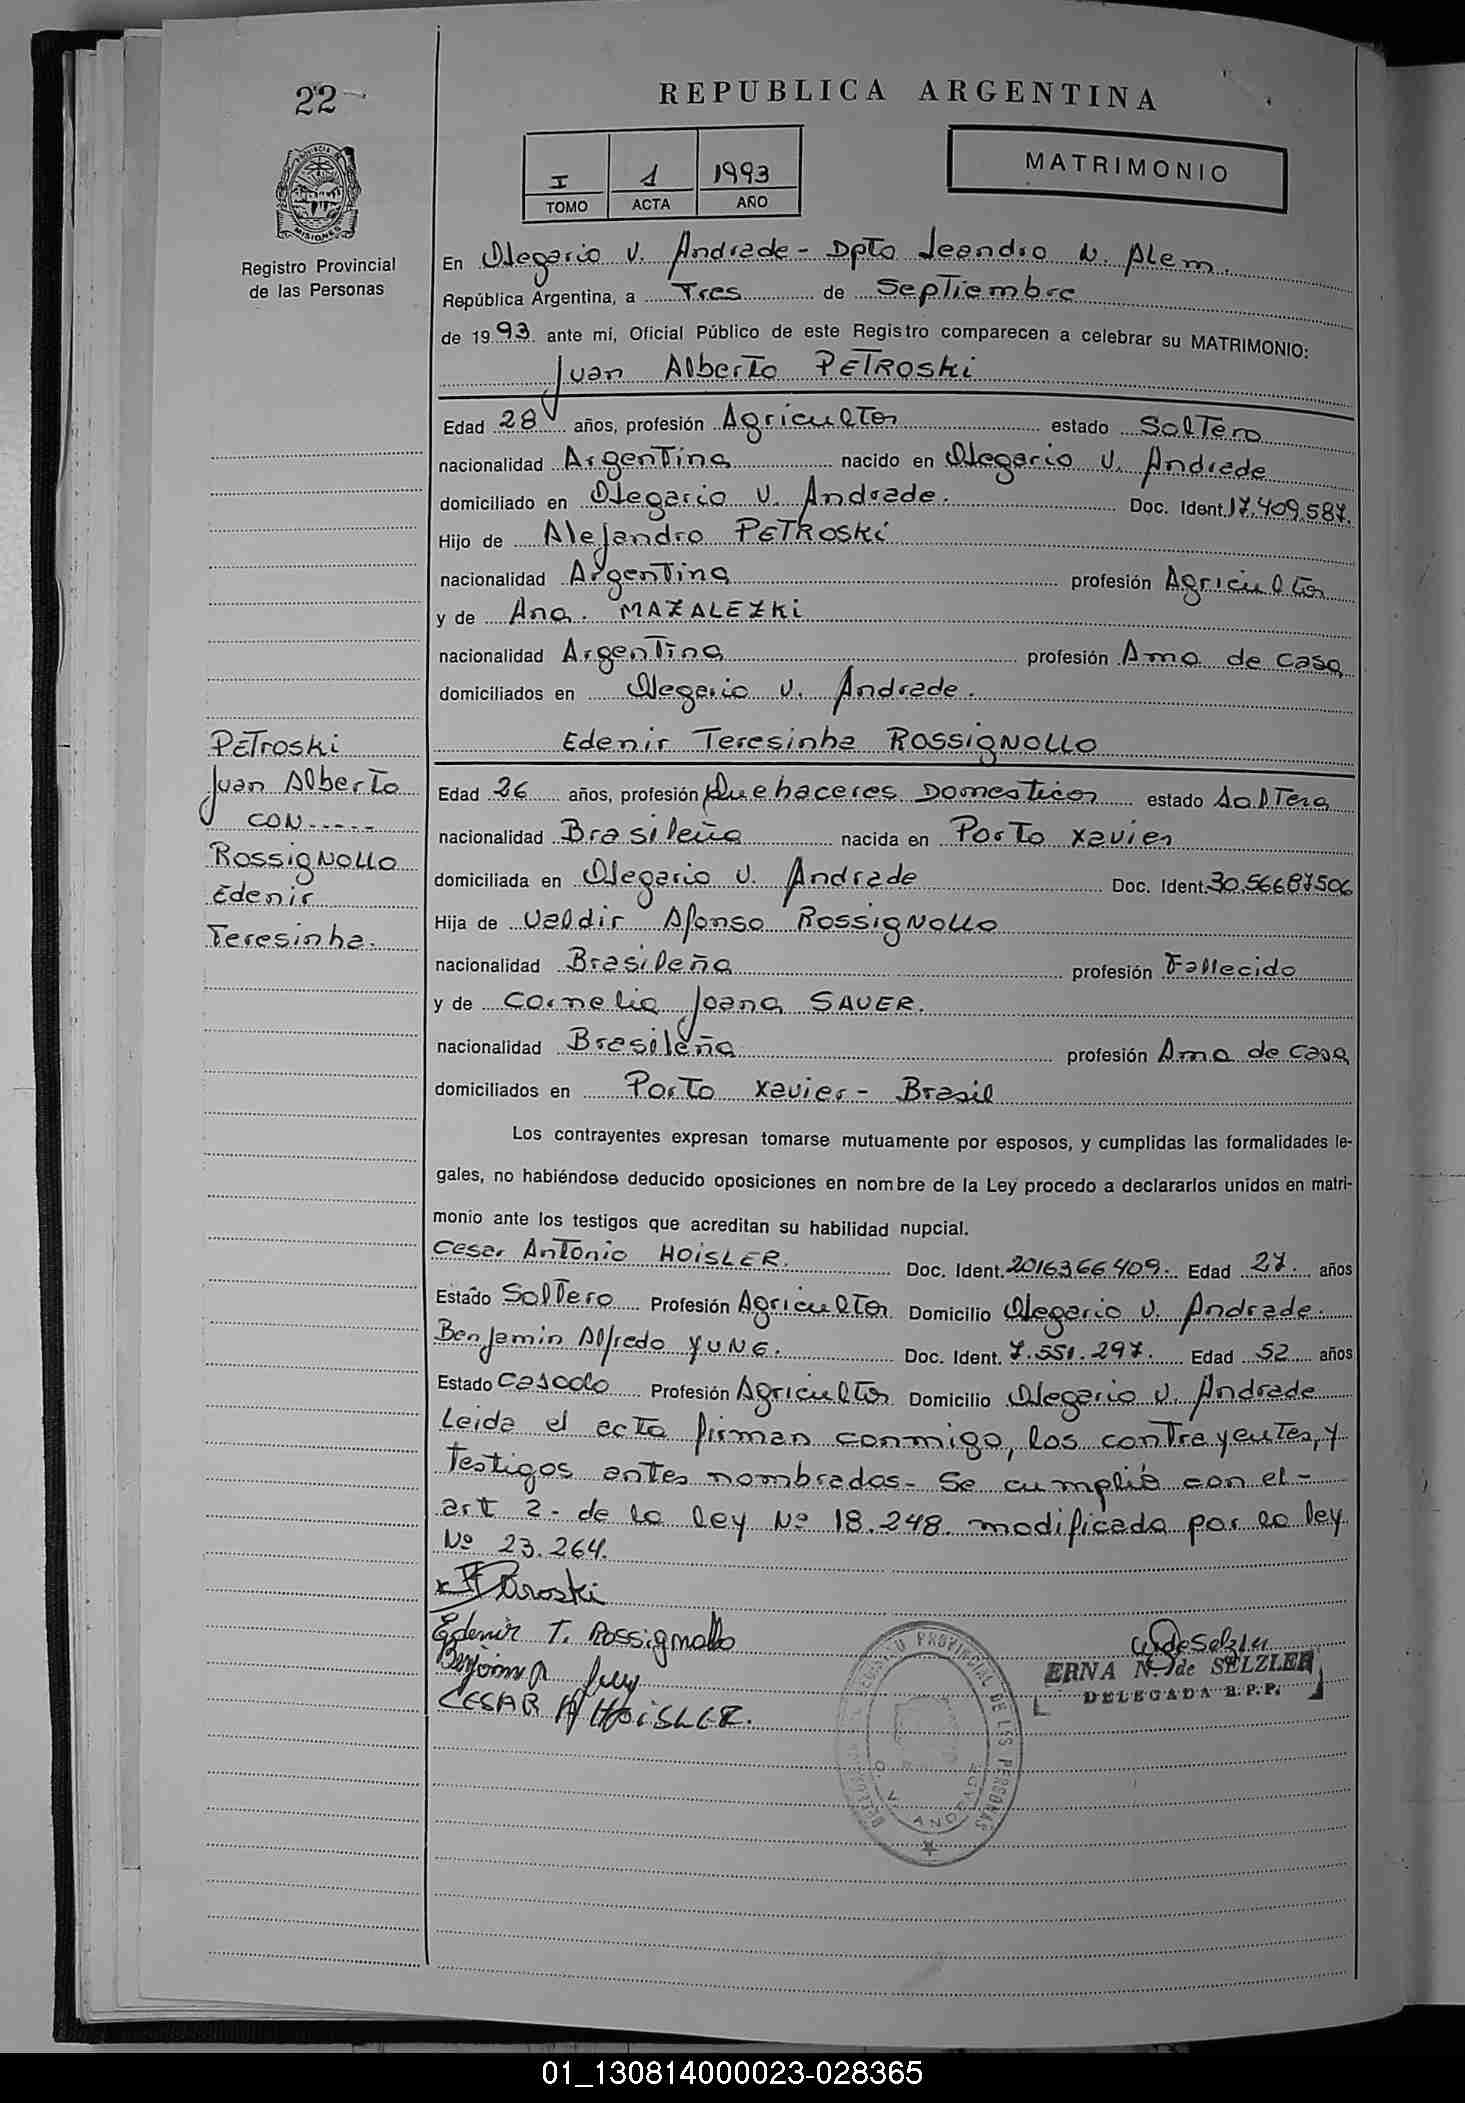 22
REPUBLICA ARGENTINA
I 1 1993
TOMO ACTA AÑO
MATRIMONIO
PROVINCIA DE
MISIONES
Registro Provincial
de las Personas
En Olegario V. Andrade - Dpto Leandro N. Alem.
República Argentina, a Tres de Septiembre
de 1993. ante mi, Oficial Público de este Registro comparecen a celebrar su MATRIMONIO:
Juan Alberto PETROSKi
Edad 28 años, profesión Agricultor estado Soltero
nacionalidad Argentina nacido en Olegario V. Andrade
domiciliado en Olegario V. Andrade. Doc. Ident. 17.409.587.
Hijo de Alejandro PETROSKi
nacionalidad Argentina profesión Agricultor
y de Ana. MAZALEZKi
nacionalidad Argentina profesión Ama de casa
domiciliados en Olegario V. Andrade.
Edenir Teresinha ROSSigNOLLO
Edad 26 años, profesión Quehaceres Domesticos estado Soltera
nacionalidad Brasileña nacida en Porto Xavier
domiciliada en Olegario V. Andrade Doc. Ident. 30.56687506
Hija de Valdir Afonso ROSSigNOLLO
nacionalidad Brasileña profesión Fallecido
y de Cornelia Joana SAUER.
nacionalidad Brasileña profesión Ama de casa
domiciliados en Porto Xavier - Brasil
PETroski
Juan Alberto
CON-----
ROSSigNOLLO
Edenir
Teresinha.
Los contrayentes expresan tomarse mutuamente por esposos, y cumplidas las formalidades le-
gales, no habiéndose deducido oposiciones en nombre de la Ley procedo a declararlos unidos en matri-
monio ante los testigos que acreditan su habilidad nupcial.
Cesar Antonio HOiSLER. Doc. Ident. 2016366409. Edad 27. años
Estado Soltero Profesión Agricultor Domicilio Olegario V. Andrade.
Benjamin Alfredo YUNG. Doc. Ident. 7.551.297. Edad 52 años
Estado Casado Profesión Agricultor Domicilio Olegario V. Andrade
Leida el acta firman conmigo, los contrayentes, y
Testigos antes nombrados- Se cumplió con el-
art 2- de la ley Nº 18.248. modificada por la ley
Nº 23.264.
Petroski
Edenir T. Rossignollo
Benjamin A
CESAR A HOiSLER.
deSelzler
ERNA N. de SELZLER
DELEGADA R.P.P.
REGISTRO PROVINCIAL DE LAS PERSONAS
O. V. ANDRADE
01_130814000023-028365